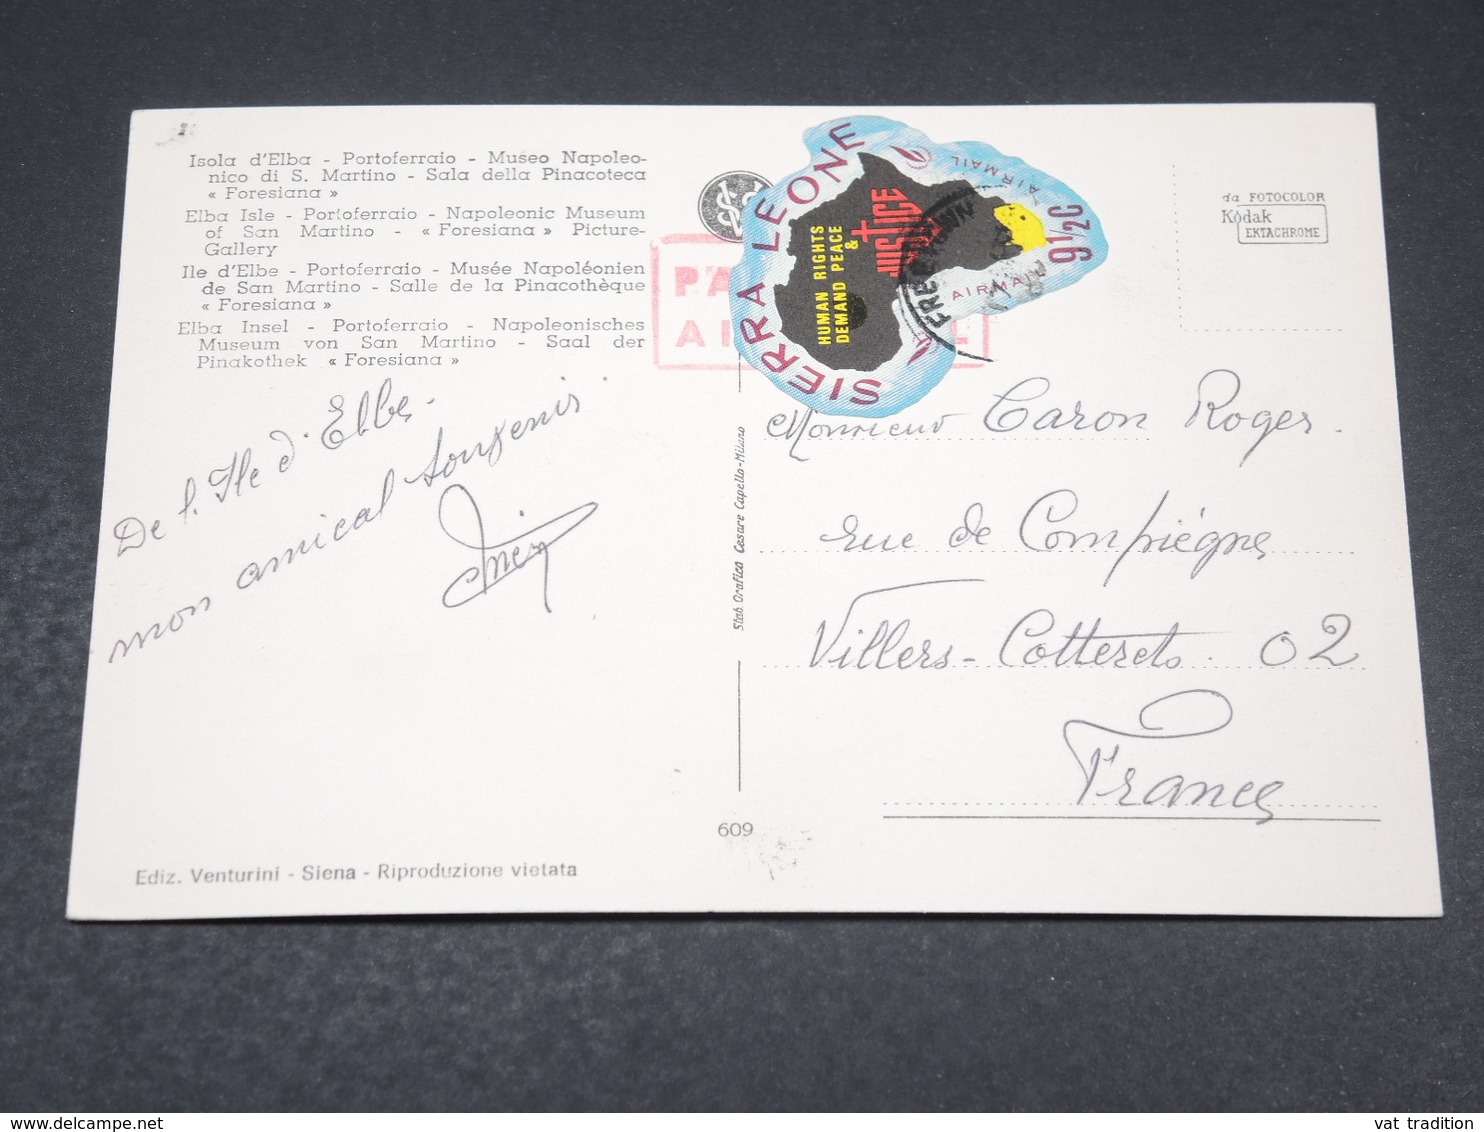 Isola d'Elba - Portoferraio - Museo Napoleo-
nico di S. Martino - Sala della Pinacoteca
« Foresiana »
Elba Isle - Portoferraio - Napoleonic Museum
of San Martino - « Foresiana » Picture-
Gallery
Ile d'Elbe - Portoferraio - Musée Napoléonien
de San Martino - Salle de la Pinacothèque
« Foresiana »
Elba Insel - Portoferraio - Napoleonisches
Museum von San Martino - Saal der
Pinakothek « Foresiana »
De l'Ile d'Elbe.
mon amical souvenir
Ediz. Venturini - Siena - Riproduzione vietata
609
Stab. Grafico Cesare Capello-Milano
SIERRA LEONE
HUMAN RIGHTS
DEMAND PEACE
&
JUSTICE
AIRMAIL
AIRMAIL
9½C
FREETOWN
da FOTOCOLOR
Kodak
EKTACHROME
Monsieur Caron Roger.
rue de Compiégne
Villers-Cotterets. 02
France
vat tradition
delcampe.net